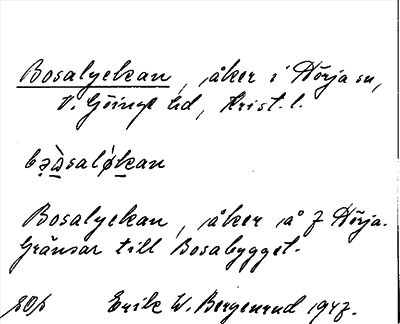 Bosalyckan, åker i Hörja sn,
V. Göinge hd, Krist. l.
Bosalyckan, åker å 7 Hörja.
Gränsar till Bosabygget.
Erik W. Bergenrud 1947.